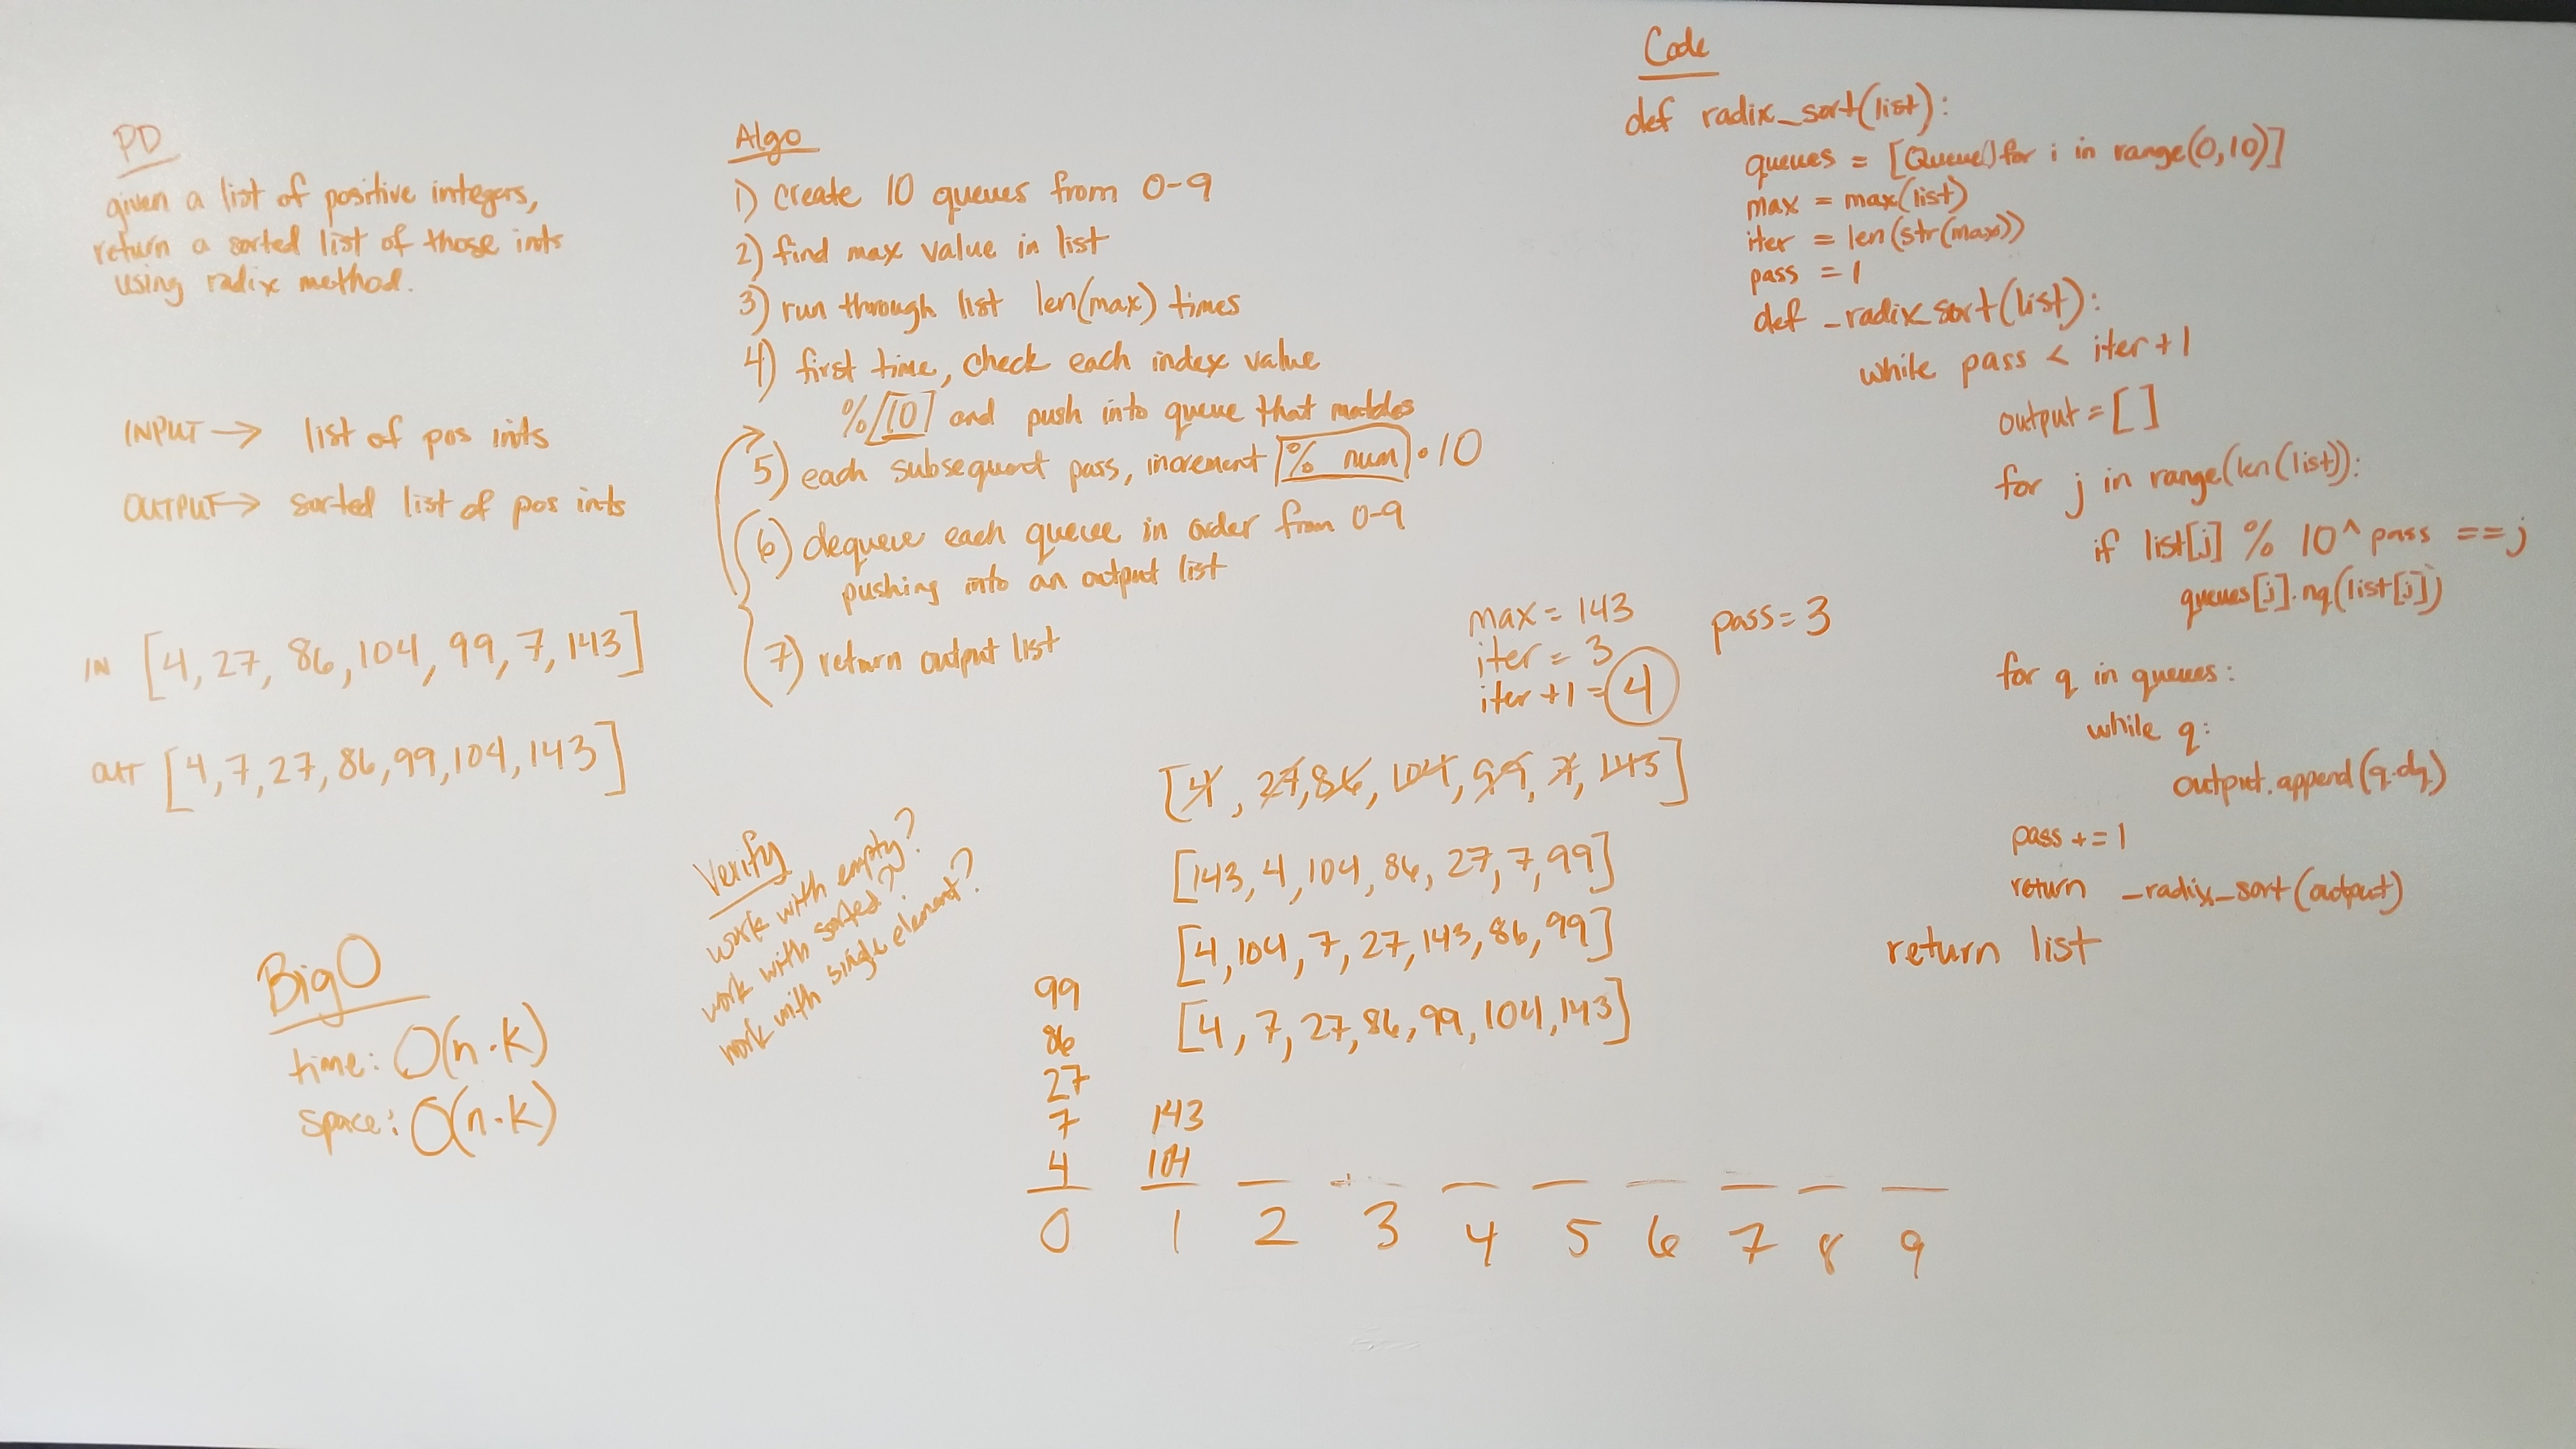 PD
given a list of positive integers,
return a sorted list of those ints
using radix method.
INPUT → list of pos ints
OUTPUT → sorted list of pos ints
IN [4, 27, 86, 104, 99, 7, 143]
OUT [4, 7, 27, 86, 99, 104, 143]
Big O
time: O(n·k)
space: O(n·k)
Algo
1) create 10 queues from 0-9
2) find max value in list
3) run through list len(max) times
4) first time, check each index value
% [10] and push into queue that matches
5) each subsequent pass, increment [% num] • 10
6) dequeue each queue in order from 0-9
pushing into an output list
7) return output list
Verify
work with empty?
work with sorted?
work with single element?
max = 143
iter = 3
iter + 1 = 4
pass = 3
[4, 27, 86, 104, 99, 7, 143]
[143, 4, 104, 86, 27, 7, 99]
[4, 104, 7, 27, 143, 86, 99]
[4, 7, 27, 86, 99, 104, 143]
99
86
27
7 143
4 104
0 1 2 3 4 5 6 7 8 9
Code
def radix_sort(list):
queues = [Queue() for i in range(0,10)]
max = max(list)
iter = len(str(max))
pass = 1
def _radix_sort(list):
while pass < iter + 1
output = []
for j in range(len(list)):
if list[j] % 10^pass == j
queues[j].nq(list[j])
for q in queues:
while q:
output.append(q.dq)
pass += 1
return _radix_sort(output)
return list